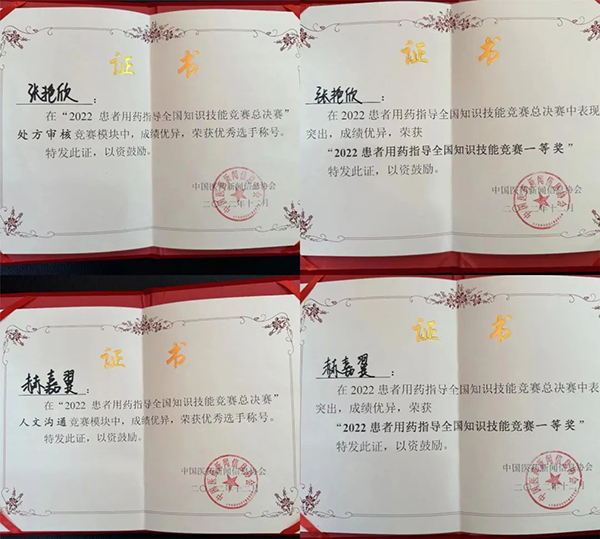 证 书
张艳欣：
在“2022 患者用药指导全国知识技能竞赛总决赛”
处方审核竞赛模块中，成绩优异，荣获优秀选手称号。
特发此证，以资鼓励。
中国医药新闻信息协会
证 书
张艳欣：
在2022患者用药指导全国知识技能竞赛总决赛中表现
突出，成绩优异，荣获
“2022患者用药指导全国知识技能竞赛一等奖”
特发此证，以资鼓励。
中国医药新闻信息协会
证 书
赫嘉翼：
在“2022 患者用药指导全国知识技能竞赛总决赛”
人文沟通竞赛模块中，成绩优异，荣获优秀选手称号。
特发此证，以资鼓励。
中国医药新闻信息协会
证 书
赫嘉翼：
在2022患者用药指导全国知识技能竞赛总决赛中表
突出，成绩优异，荣获
“2022患者用药指导全国知识技能竞赛一等奖”
特发此证，以资鼓励。
中国医药新闻信息协会